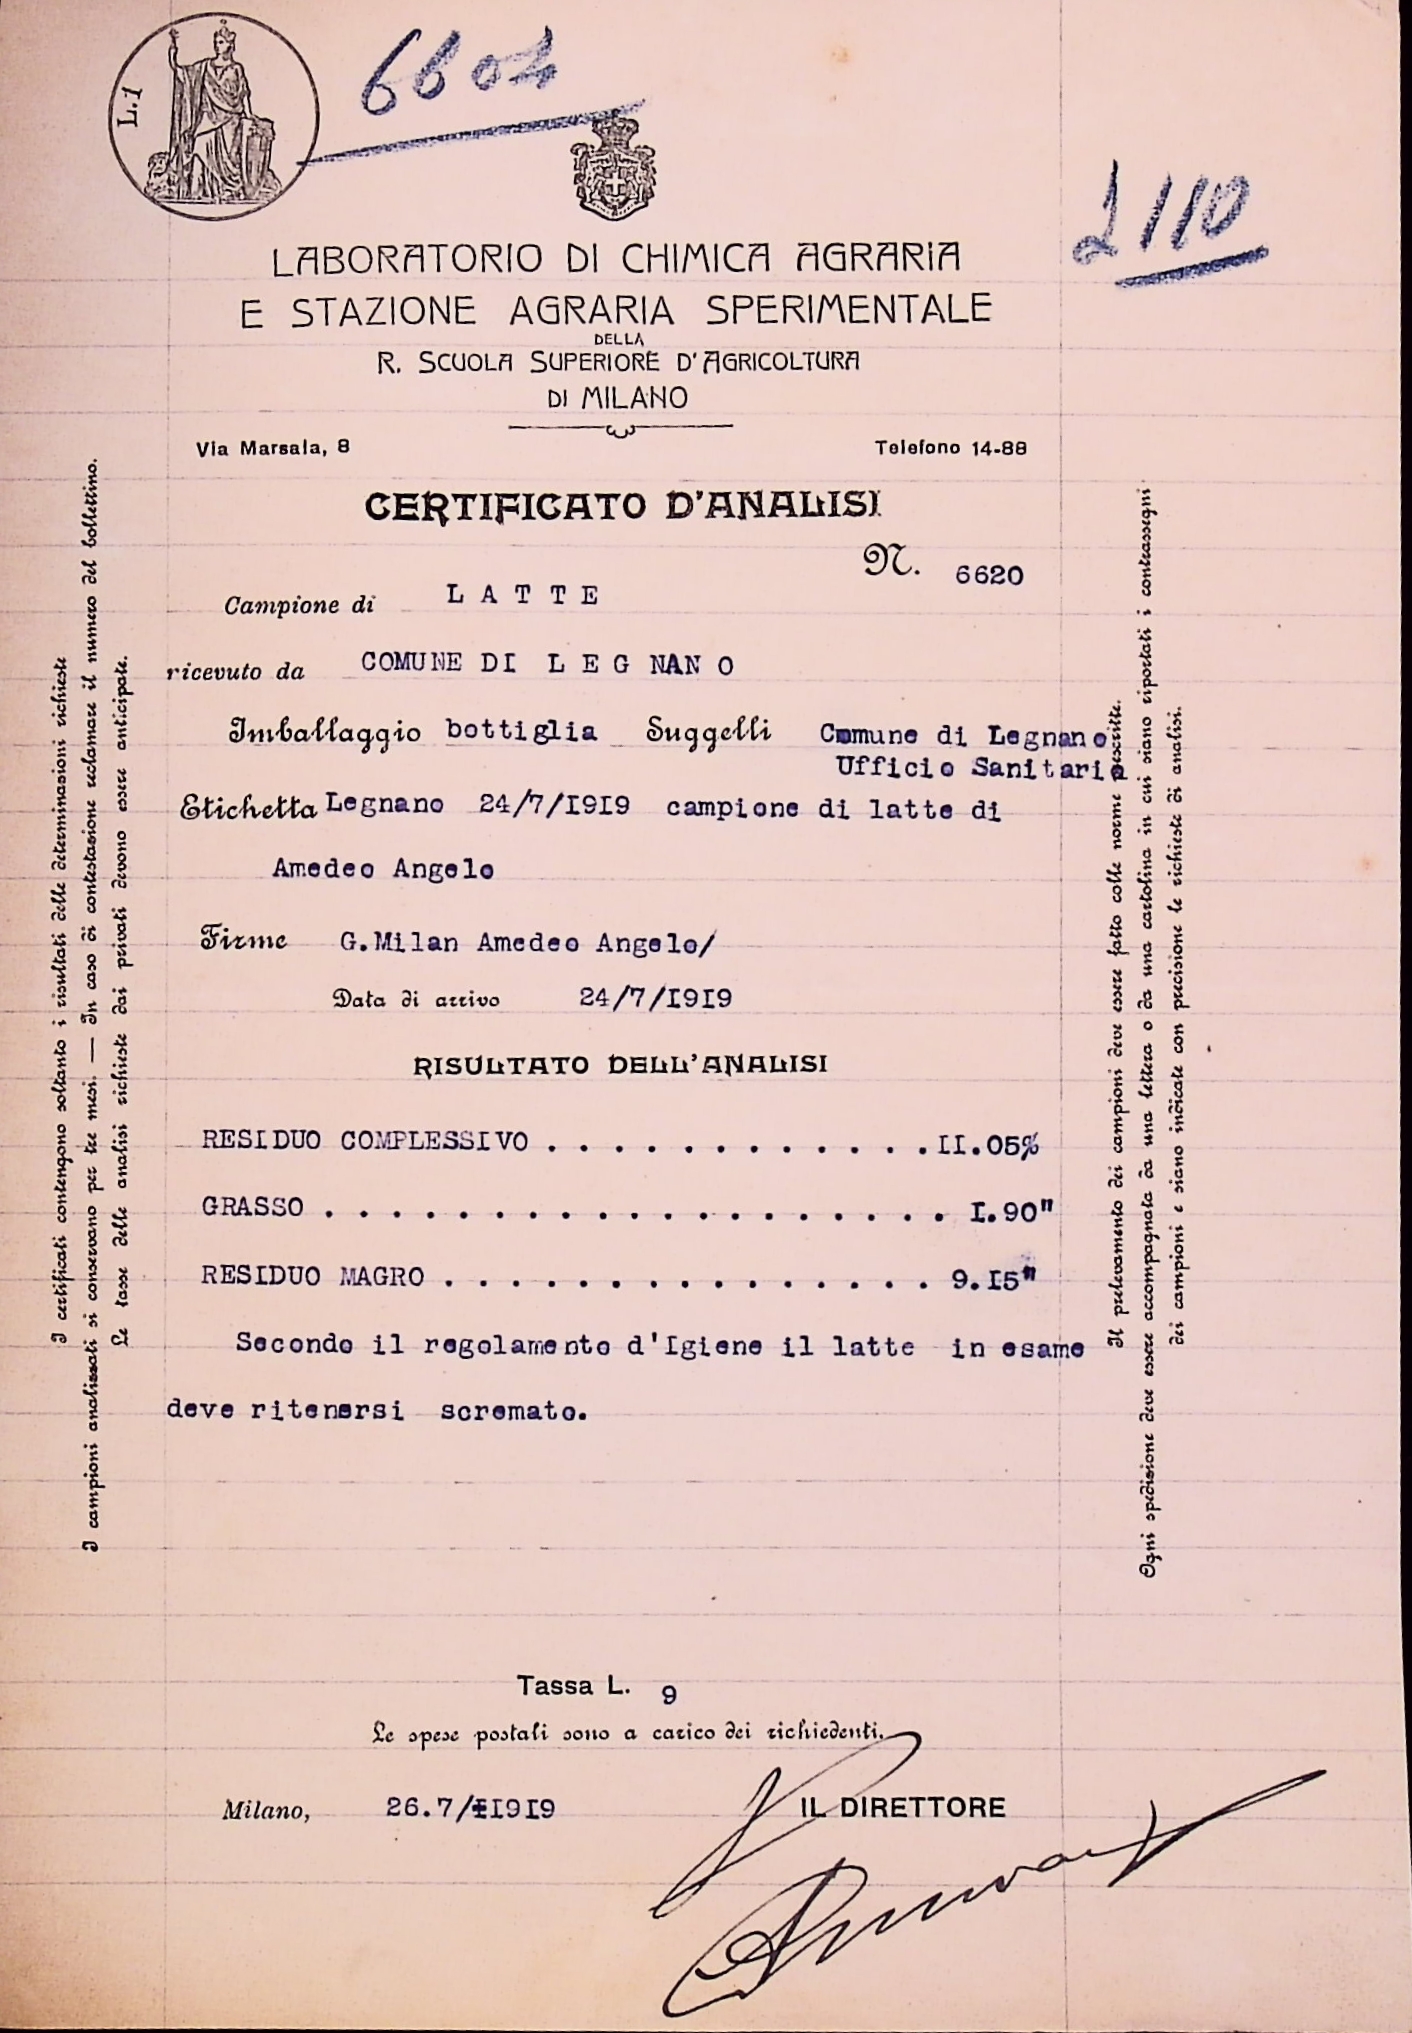 L.1
6604
2110
LABORATORIO DI CHIMICA AGRARIA
E STAZIONE AGRARIA SPERIMENTALE
DELLA
R. SCUOLA SUPERIORE D'AGRICOLTURA
DI MILANO
Via Marsala, 8 Telefono 14-88
CERTIFICATO D'ANALISI
N. 6620
Campione di L A T T E
ricevuto da COMUNE DI L E G NAN O
Imballaggio bottiglia Suggelli Comune di Legnano
Ufficio Sanitario
Etichetta Legnano 24/7/I9I9 campione di latte di
Amedeo Angelo
Firme G.Milan Amedeo Angelo/
Data di arrivo 24/7/I9I9
RISULTATO DELL'ANALISI
RESIDUO COMPLESSIVO . . . . . . . . . . . . II.05%
GRASSO . . . . . . . . . . . . . . . . . . . I.90"
RESIDUO MAGRO . . . . . . . . . . . . . . . 9.I5"
Secondo il regolamento d'Igiene il latte in esame
deve ritenersi scremato.
Tassa L. 9
Le spese postali sono a carico dei richiedenti.
Milano, 26.7/I9I9 IL DIRETTORE
I certificati contengono soltanto i risultati delle determinazioni richieste
I campioni analizzati si conservano per tre mesi. — In caso di contestazione reclamare il numero del bollettino.
Le tasse delle analisi richieste dai privati devono essere anticipate.
Il prelevamento dei campioni deve essere fatto colle norme prescritte.
Ogni spedizione deve essere accompagnata da una lettera o da una cartolina in cui siano riportati i contrassegni
dei campioni e siano indicate con precisione le richieste di analisi.